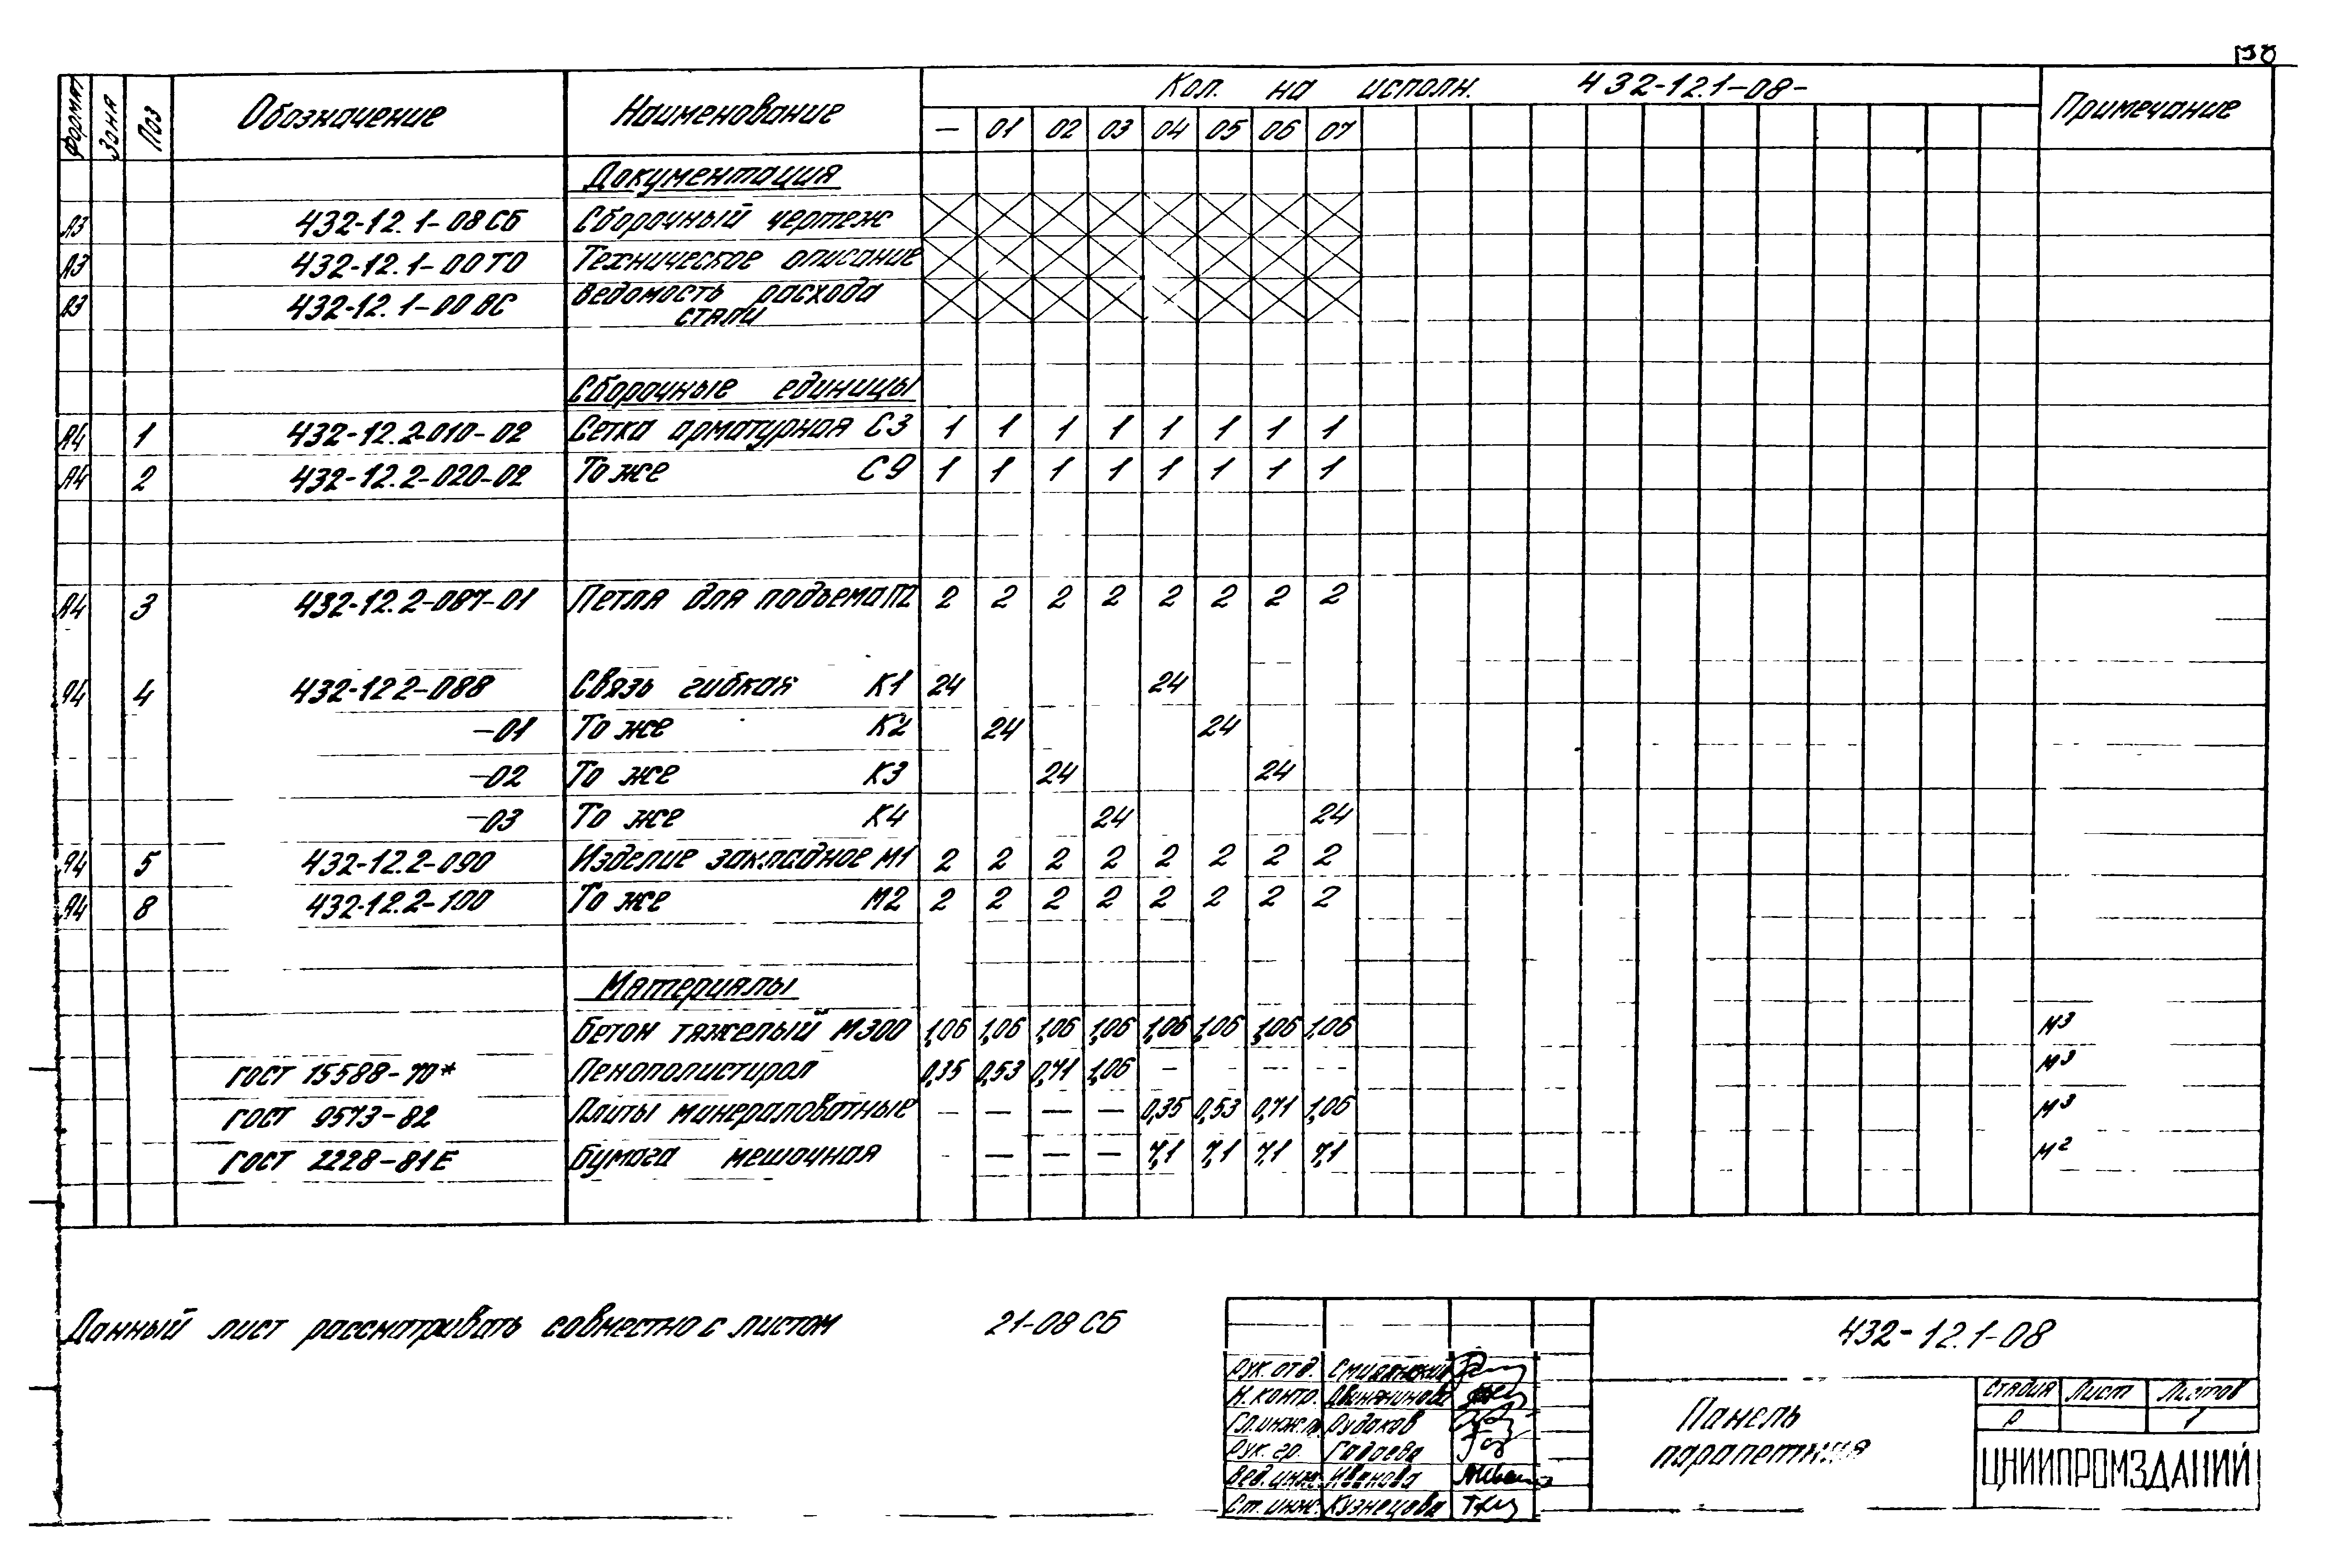 Формат Зона Поз Обозначение Наименование Кол. на исполн. 432-12.1-08- Примечание
— 01 02 03 04 05 06 07
Документация
А3 432-12.1-08СБ Сборочный чертеж
А3 432-12.1-00ТО Техническое описание
А3 432-12.1-00ВС Ведомость расхода
стали
Сборочные единицы
А4 1 432-12.2-010-02 Сетка арматурная С3 1 1 1 1 1 1 1 1
А4 2 432-12.2-020-02 То же С9 1 1 1 1 1 1 1 1
А4 3 432-12.2-087-01 Петля для подъема П2 2 2 2 2 2 2 2 2
А4 4 432-12 2-088 Связь гибкая К1 24 24
-01 То же К2 24 24
-02 То же К3 24 24
-03 То же К4 24 24
А4 5 432-12.2-090 Изделие закладное М1 2 2 2 2 2 2 2 2
А4 8 432-12.2-100 То же М2 2 2 2 2 2 2 2 2
Материалы
Бетон тяжелый М300 1,06 1,06 1,06 1,06 1,06 1,06 1,06 1,06 м³
ГОСТ 15588-70* Пенополистирол 0,35 0,53 0,71 1,06 - - - - м³
ГОСТ 9573-82 Плиты минераловатные - — — — 0,35 0,53 0,71 1,06 м³
ГОСТ 2228-81Е Бумага мешочная - — — — 7,1 7,1 7,1 7,1 м²
Данный лист рассматривать совместно с листом 21-08 СБ
432-12.1-08
Рук. отд. Смилянский
Н. контр. Двинянинова
Гл.инж.п. Рудаков
Рук. гр. Гадаева
Вед. инж. Иванова
Ст. инж. Кузнецова
Панель
парапетная
Стадия Лист Листов
Р 1
ЦНИИПРОМЗДАНИЙ